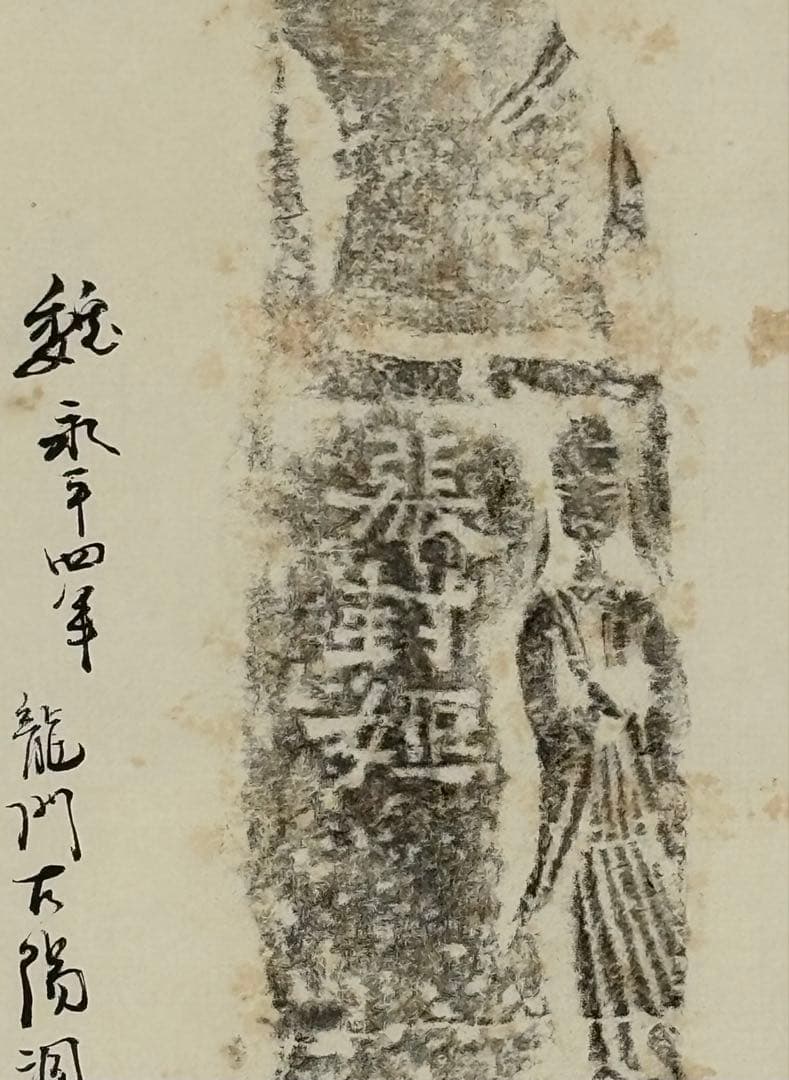 封姬
魏永平四年龍門古陽洞